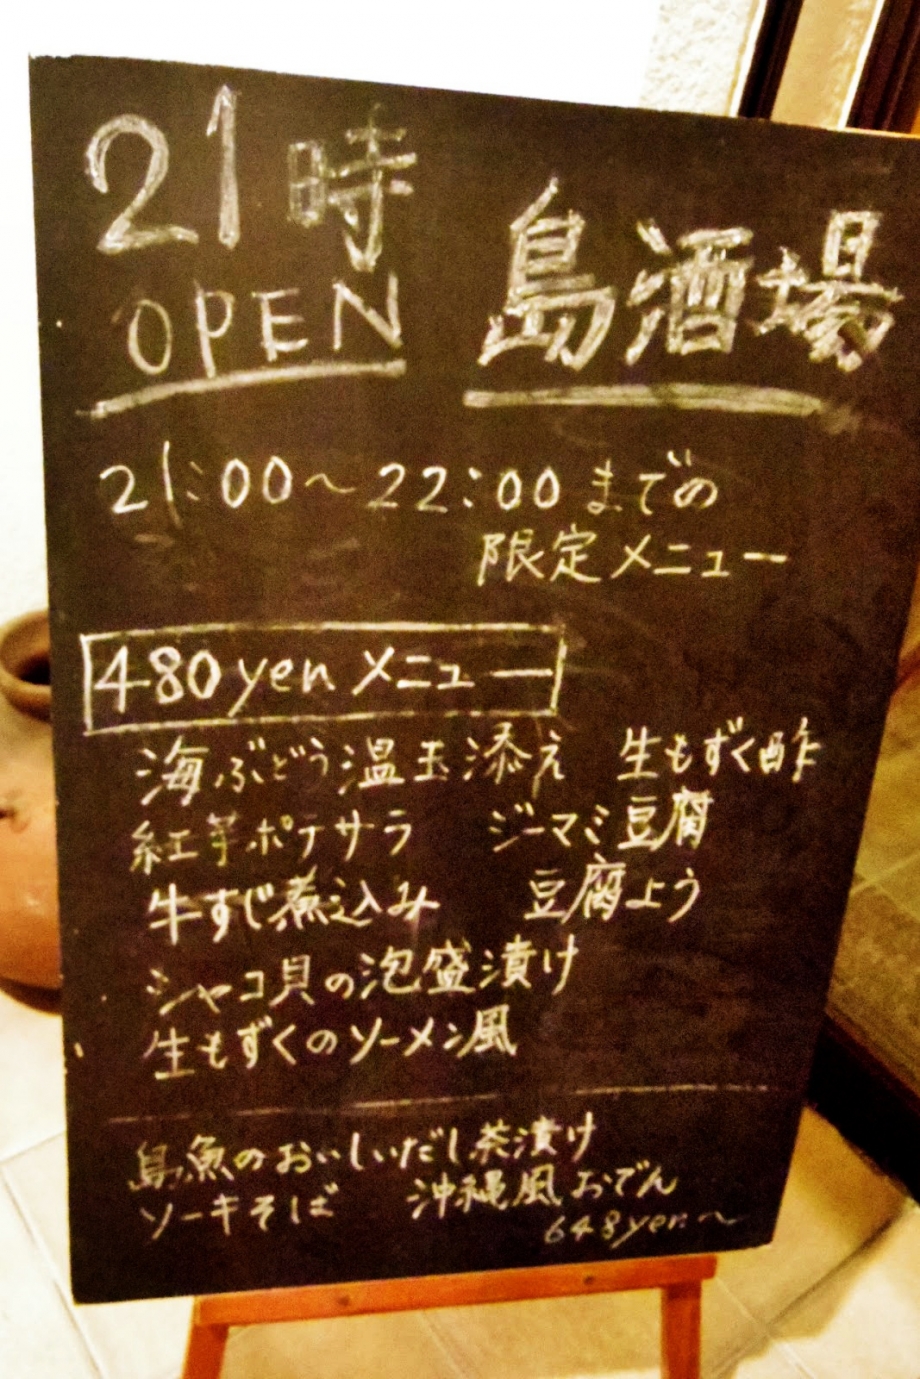 21時 島酒場
OPEN
21:00〜22:00までの
限定メニュー
480yenメニュー
海ぶどう温玉添え 生もずく酢
紅芋ポテサラ ジーマミ豆腐
牛すじ煮込み 豆腐よう
シャコ貝の泡盛漬け
生もずくのソーメン風
島魚のおいしいだし茶漬け
ソーキそば 沖縄風おでん
648yen〜